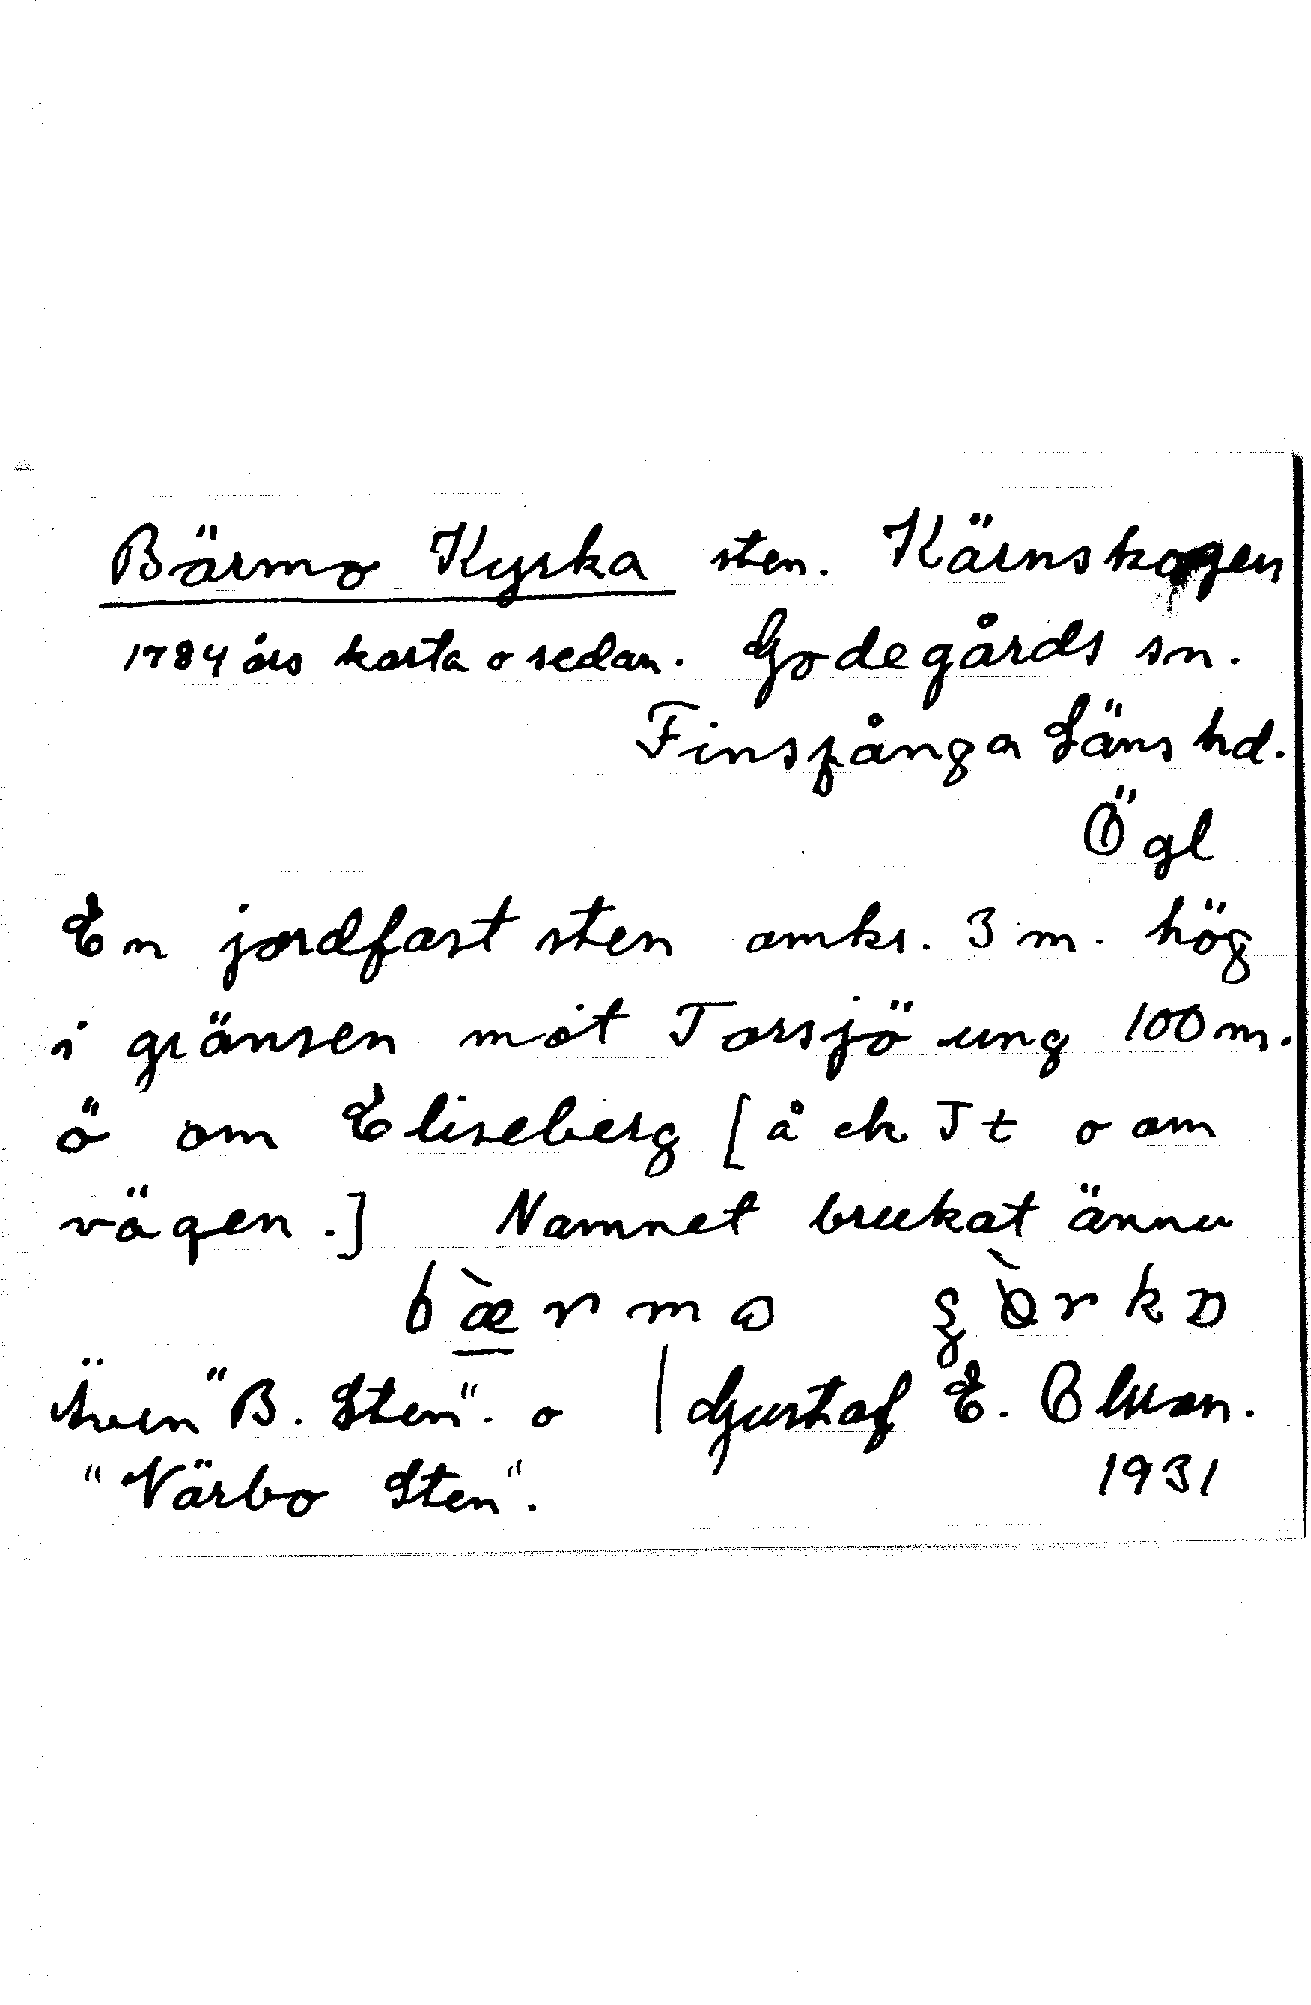 Bärmo Kyrka sten. Kärnskogen
1784 års karta o sedan. Godegårds sn.
Finspånga Läns hd.
Ögl
En jordfast sten omkr. 3 m. hög
i gränsen mot Torsjö ung 100 m.
ö om Eliseberg [å ek It o om
vägen.] Namnet brukat ännu
bærmo ςòrka
Även "B. Sten". o | Gustaf E. Olsson.
"Närbo Sten".
1931